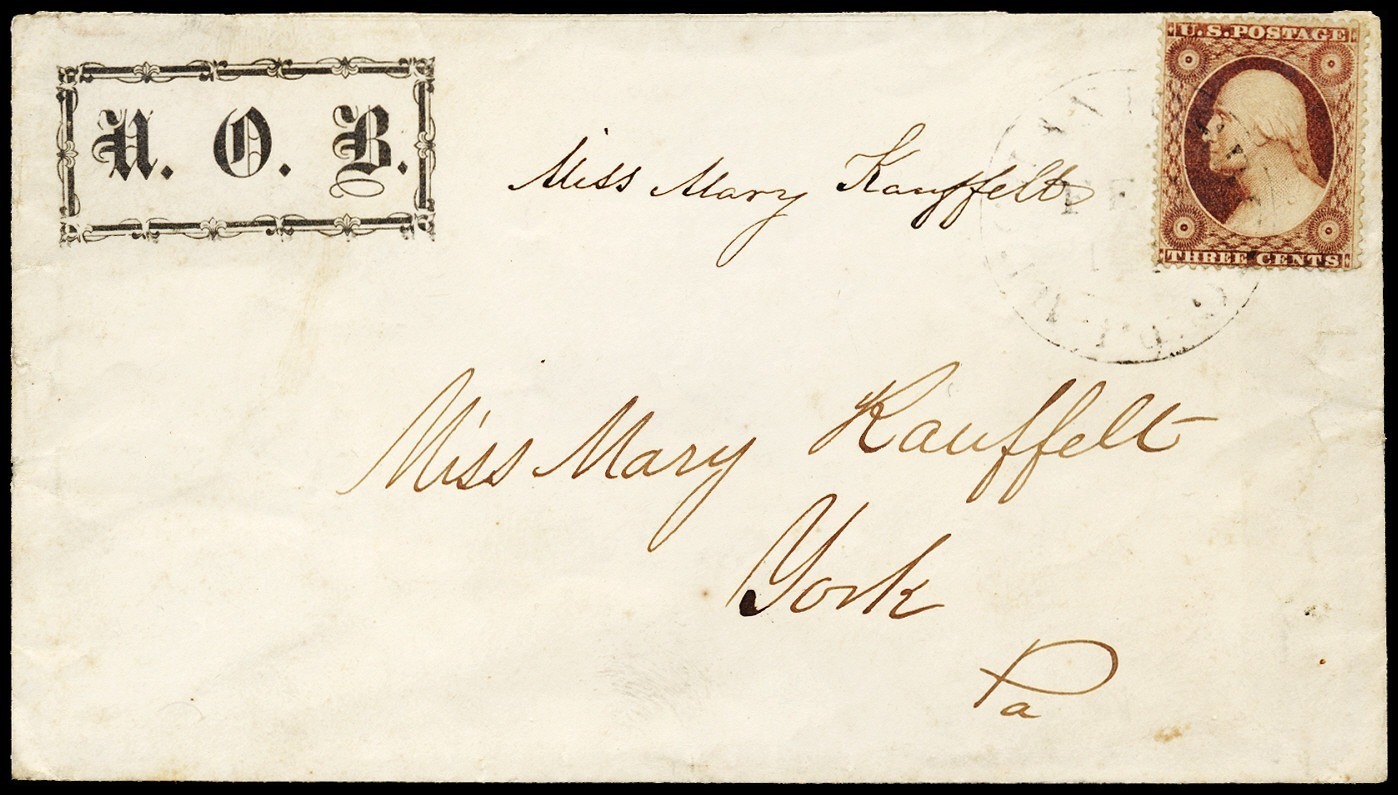 U. O. B.
Miss Mary Kauffelt
U.S. POSTAGE
THREE CENTS
Miss Mary Kauffelt
York
Pa